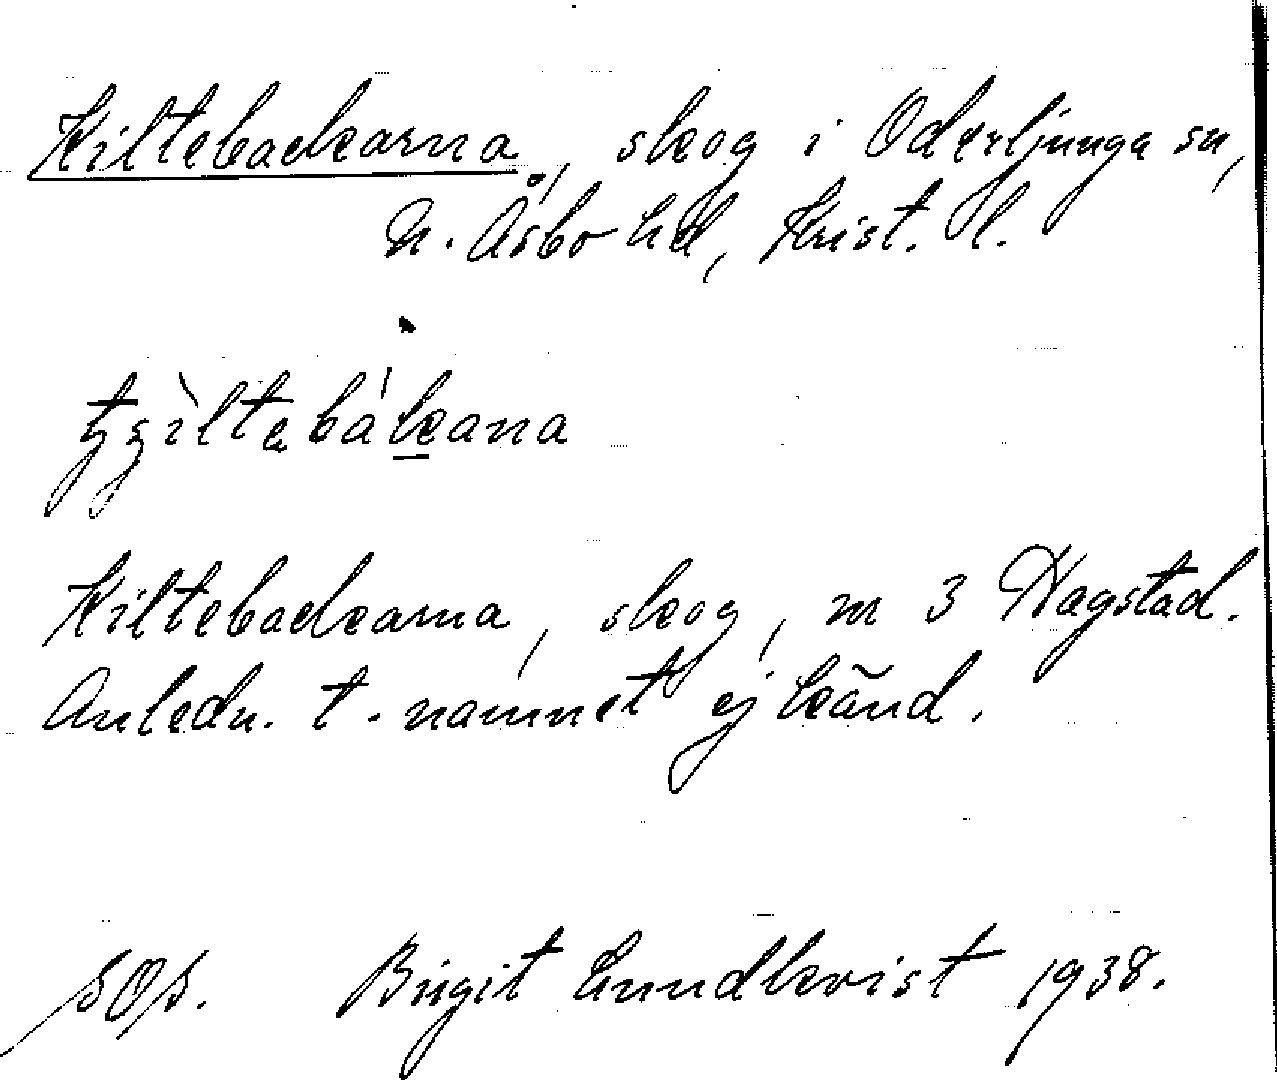 Kiltebackarna, skog i Oderljunga sn,
N. Åsbo hd, Krist. l.
Kiltebackarna, skog, m 3 Hagstad.
Anledn. t. namnet ej känd.
SOS. Birgit Lundkvist 1938.